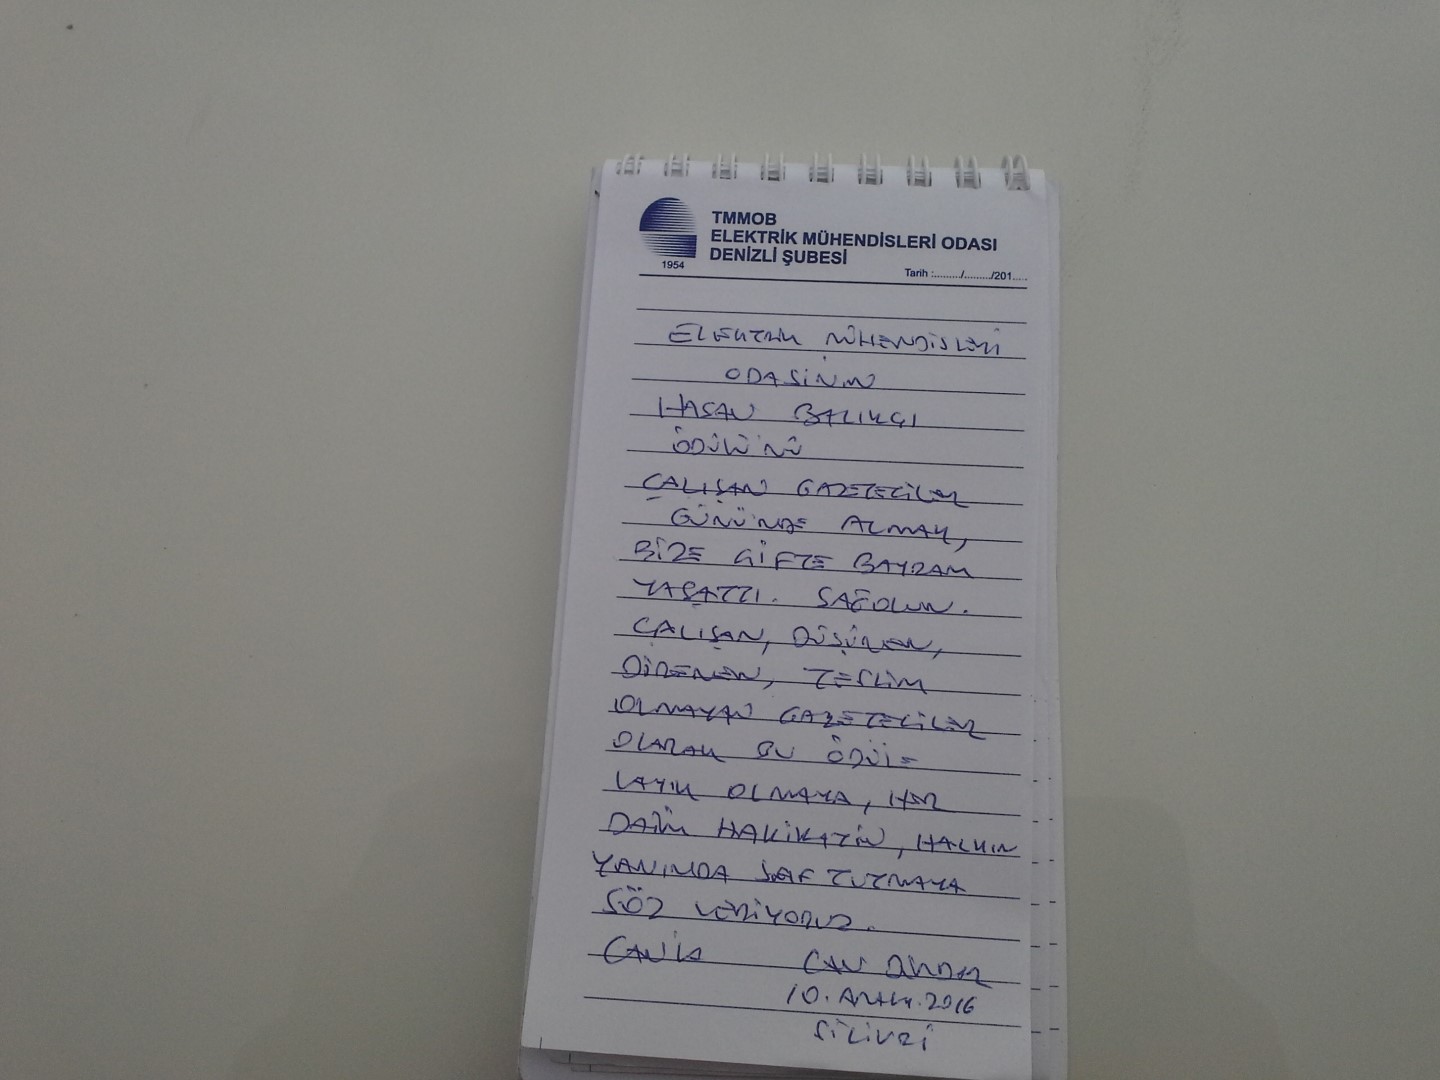 TMMOB
ELEKTRİK MÜHENDİSLERİ ODASI
DENİZLİ ŞUBESİ
1954
Tarih :........./........./201.....
ELEKTRİK MÜHENDİSLERİ
ODASİNIN
HASAN BALIKÇI
ÖDÜLÜ'NÜ
ÇALIŞAN GAZETECİLER
GÜNÜNDE ALMAK,
BİZE ÇİFTE BAYRAM
YAŞATTI. SAĞOLUN.
ÇALIŞAN, DÜŞÜNEN,
DİRENEN, TESLİM
OLMAYAN GAZETECİLER
OLARAK BU ÖDÜLE
LAYIK OLMAYA, HER
DAİM HAKİKATİN, HALKIN
YANINDA SAF TUTMAYA
SÖZ VERİYORUZ.
CAN DÜNDAR
10. 2016
SİLİVRİ